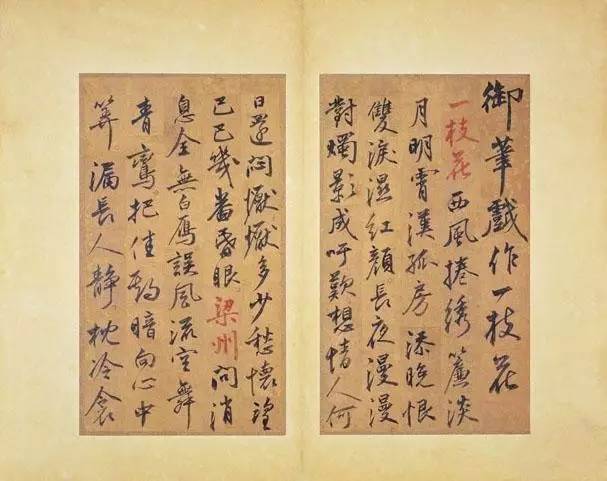 御筆戲作一枝花
一枝花 西風捲綉簾淡
月明霄漢孤房添晚恨
雙淚濕紅顏長夜漫漫
對燭影成吁歎想情人何
日還悶懨懨多少愁懷望
巴巴幾番昏眼 梁州 问消
息全無白鴈誤風流空舞
青鸞把佳期暗向心中
筭漏長人静枕冷衾